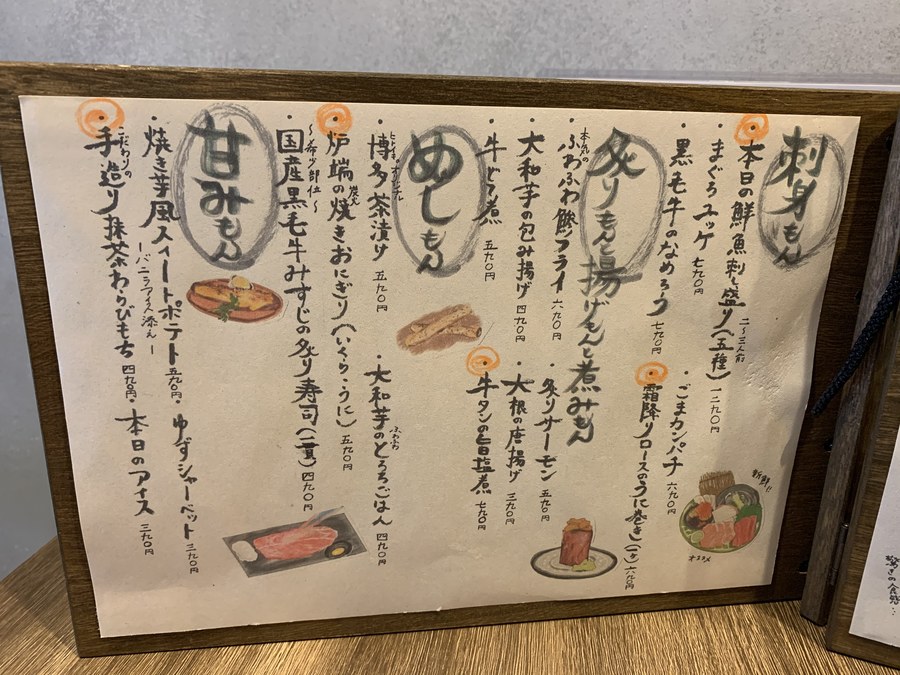 刺身もん
本日の鮮魚刺し盛り(五種)
二〜三人前
二一九〇円
・まぐろユッケ 七九〇円
・ごまカンパチ 六九〇円
・黒毛牛のなめろう 七九〇円
霜降りロースのうに巻き(一ケ) 六九〇円
新鮮で
オススメ
炙りもんと揚げもんと煮みもん
本丸の
・ふわふわ鯵フライ 六九〇円
・炙りサーモン 五九〇円
・大和芋の包み揚げ 四九〇円
・大根の唐揚げ 三九〇円
・牛すじ煮 五九〇円
牛タンの旨塩煮 七九〇円
めしもん
・博多茶漬け 五九〇円
ふわふわ
・大和芋のとろろごはん 四九〇円
炭火
炉端の焼きおにぎり(いくら・うに) 五九〇円
〜希少部位〜
・国産黒毛牛みすじの炙り寿司(一貫) 四九〇円
甘みもん
・焼き芋風スイートポテト 五九〇円
ーバニラアイス添えー
・ゆずシャーベット 三九〇円
こだわりの
手造り抹茶わらびもち 四九〇円
・本日のアイス 三九〇円
驚きの食感…